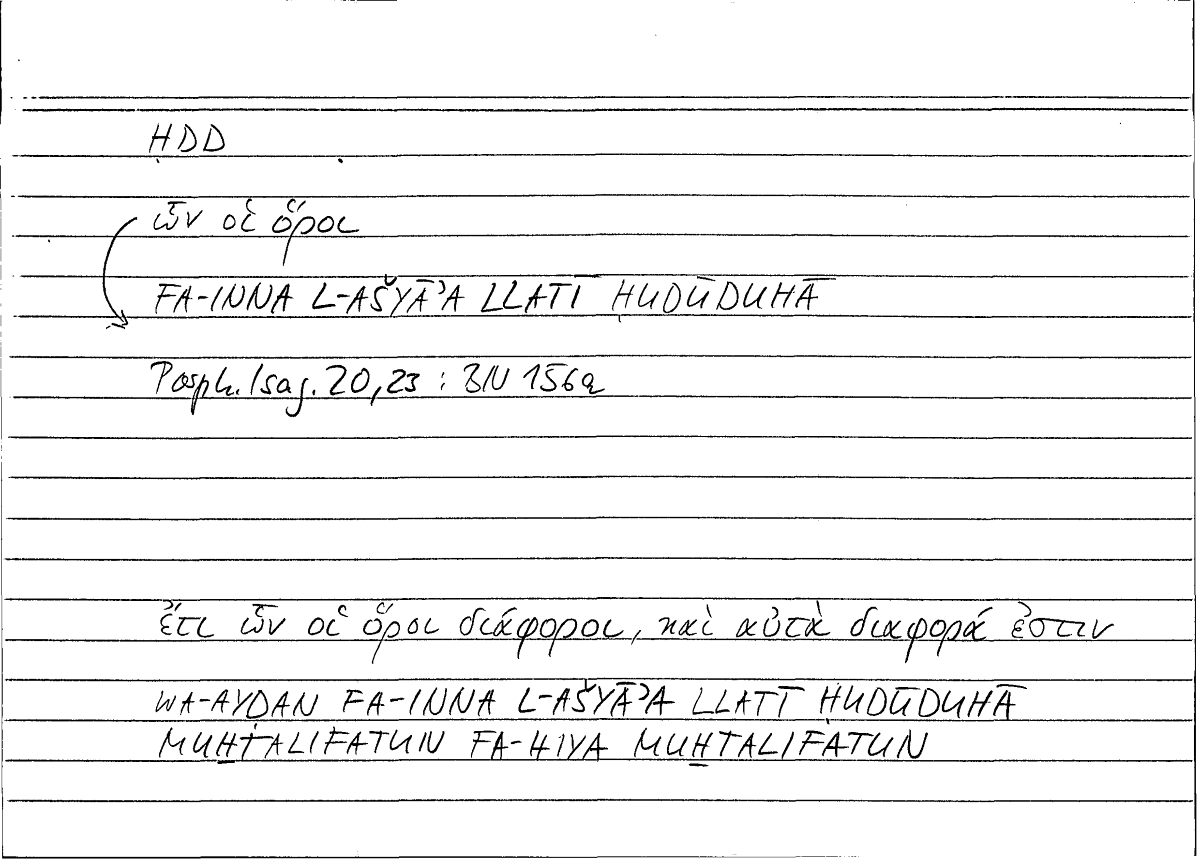 ḤDD
ὧν οἱ ὅροι
FA-INNA L-AŠYĀʾA LLATĪ ḤUDŪDUHĀ
Porph. Isag. 20,23 : BN 156a
ἔτι ὧν οἱ ὅροι διάφοροι, καὶ αὐτὰ διαφορά ἐστιν
WA-AYḌAN FA-INNA L-AŠYĀʾA LLATĪ ḤUDŪDUHĀ
MUḪTALIFATUN FA-HIYA MUḪTALIFATUN